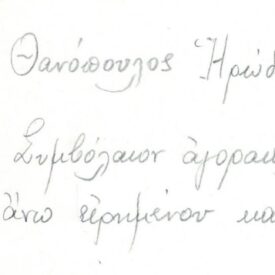 Θανόπουλος Ἡρώδ
Συμβόλαιον ἀγορακ
ἄνω εἰρημένου κα